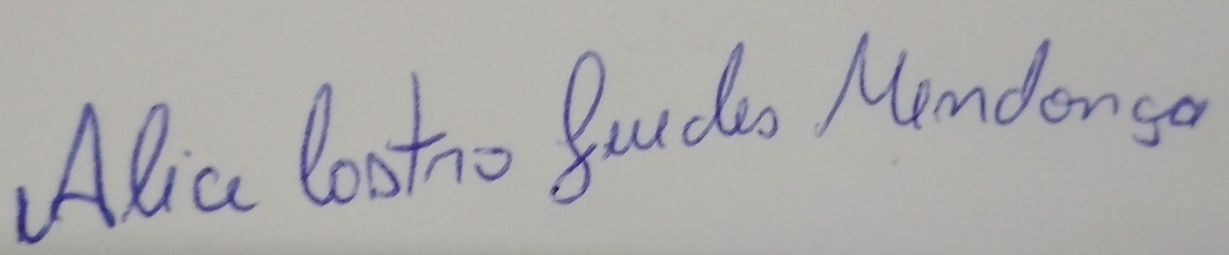 Alice Castro Guedes Mendonça